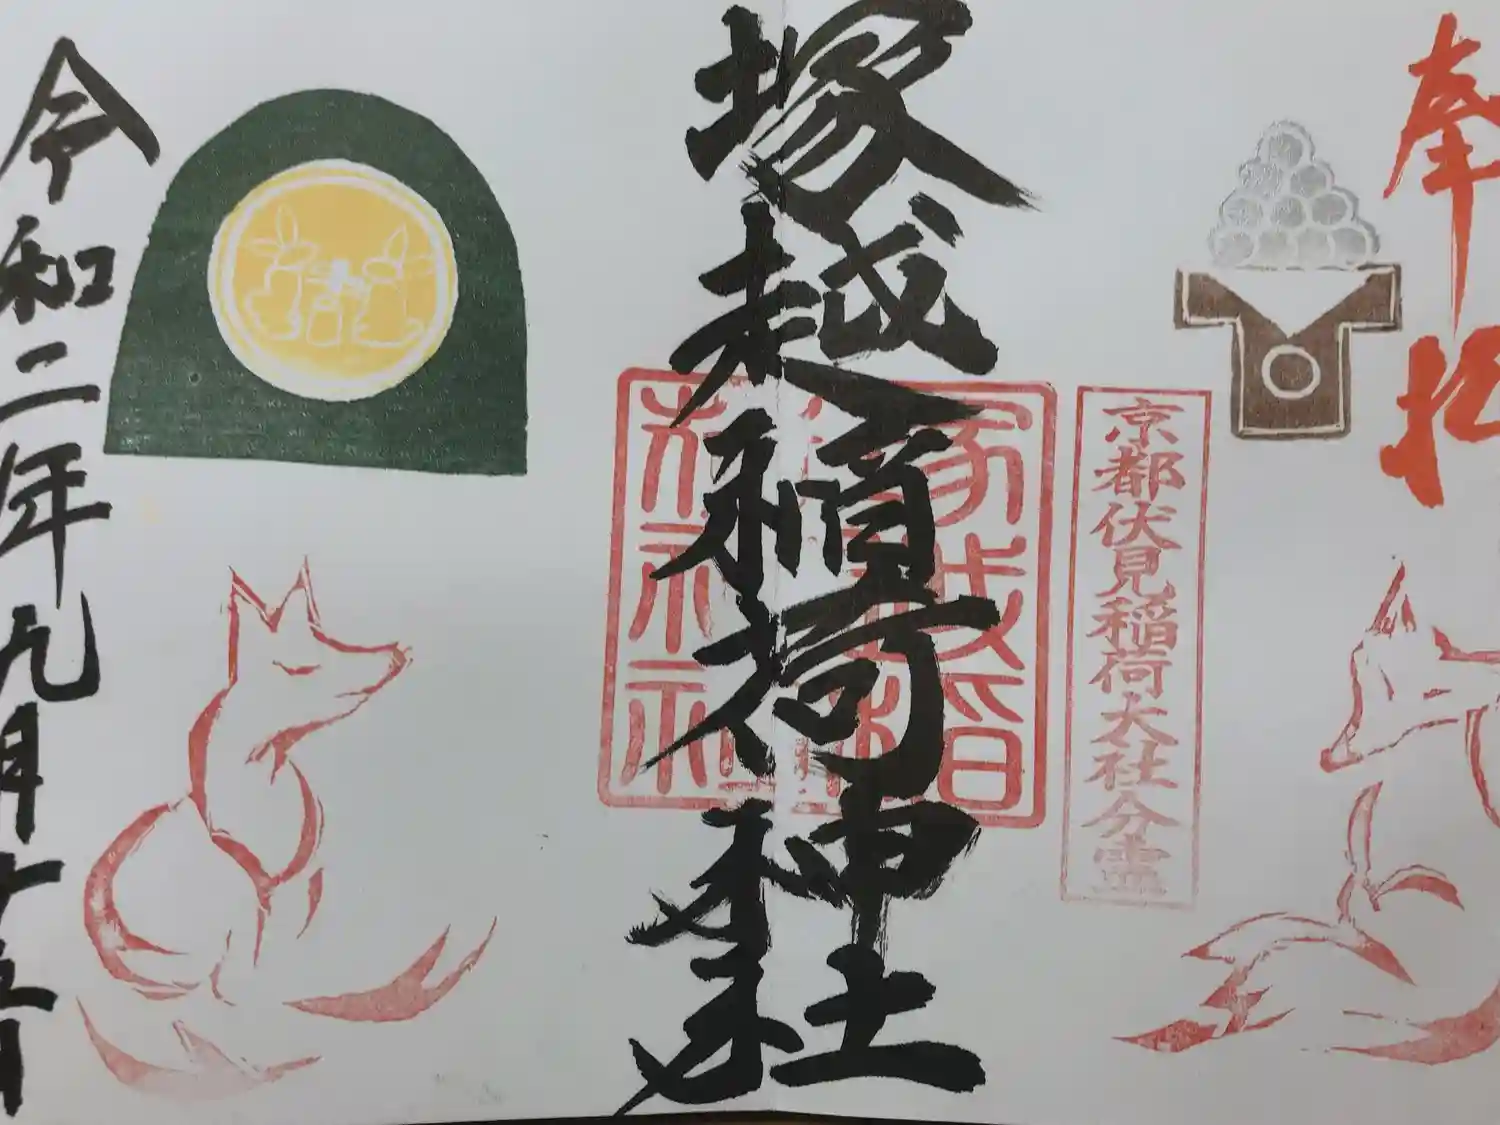 奉拝
京都伏見稲荷大社分霊
塚越稲荷神社
令和二年九月十五日